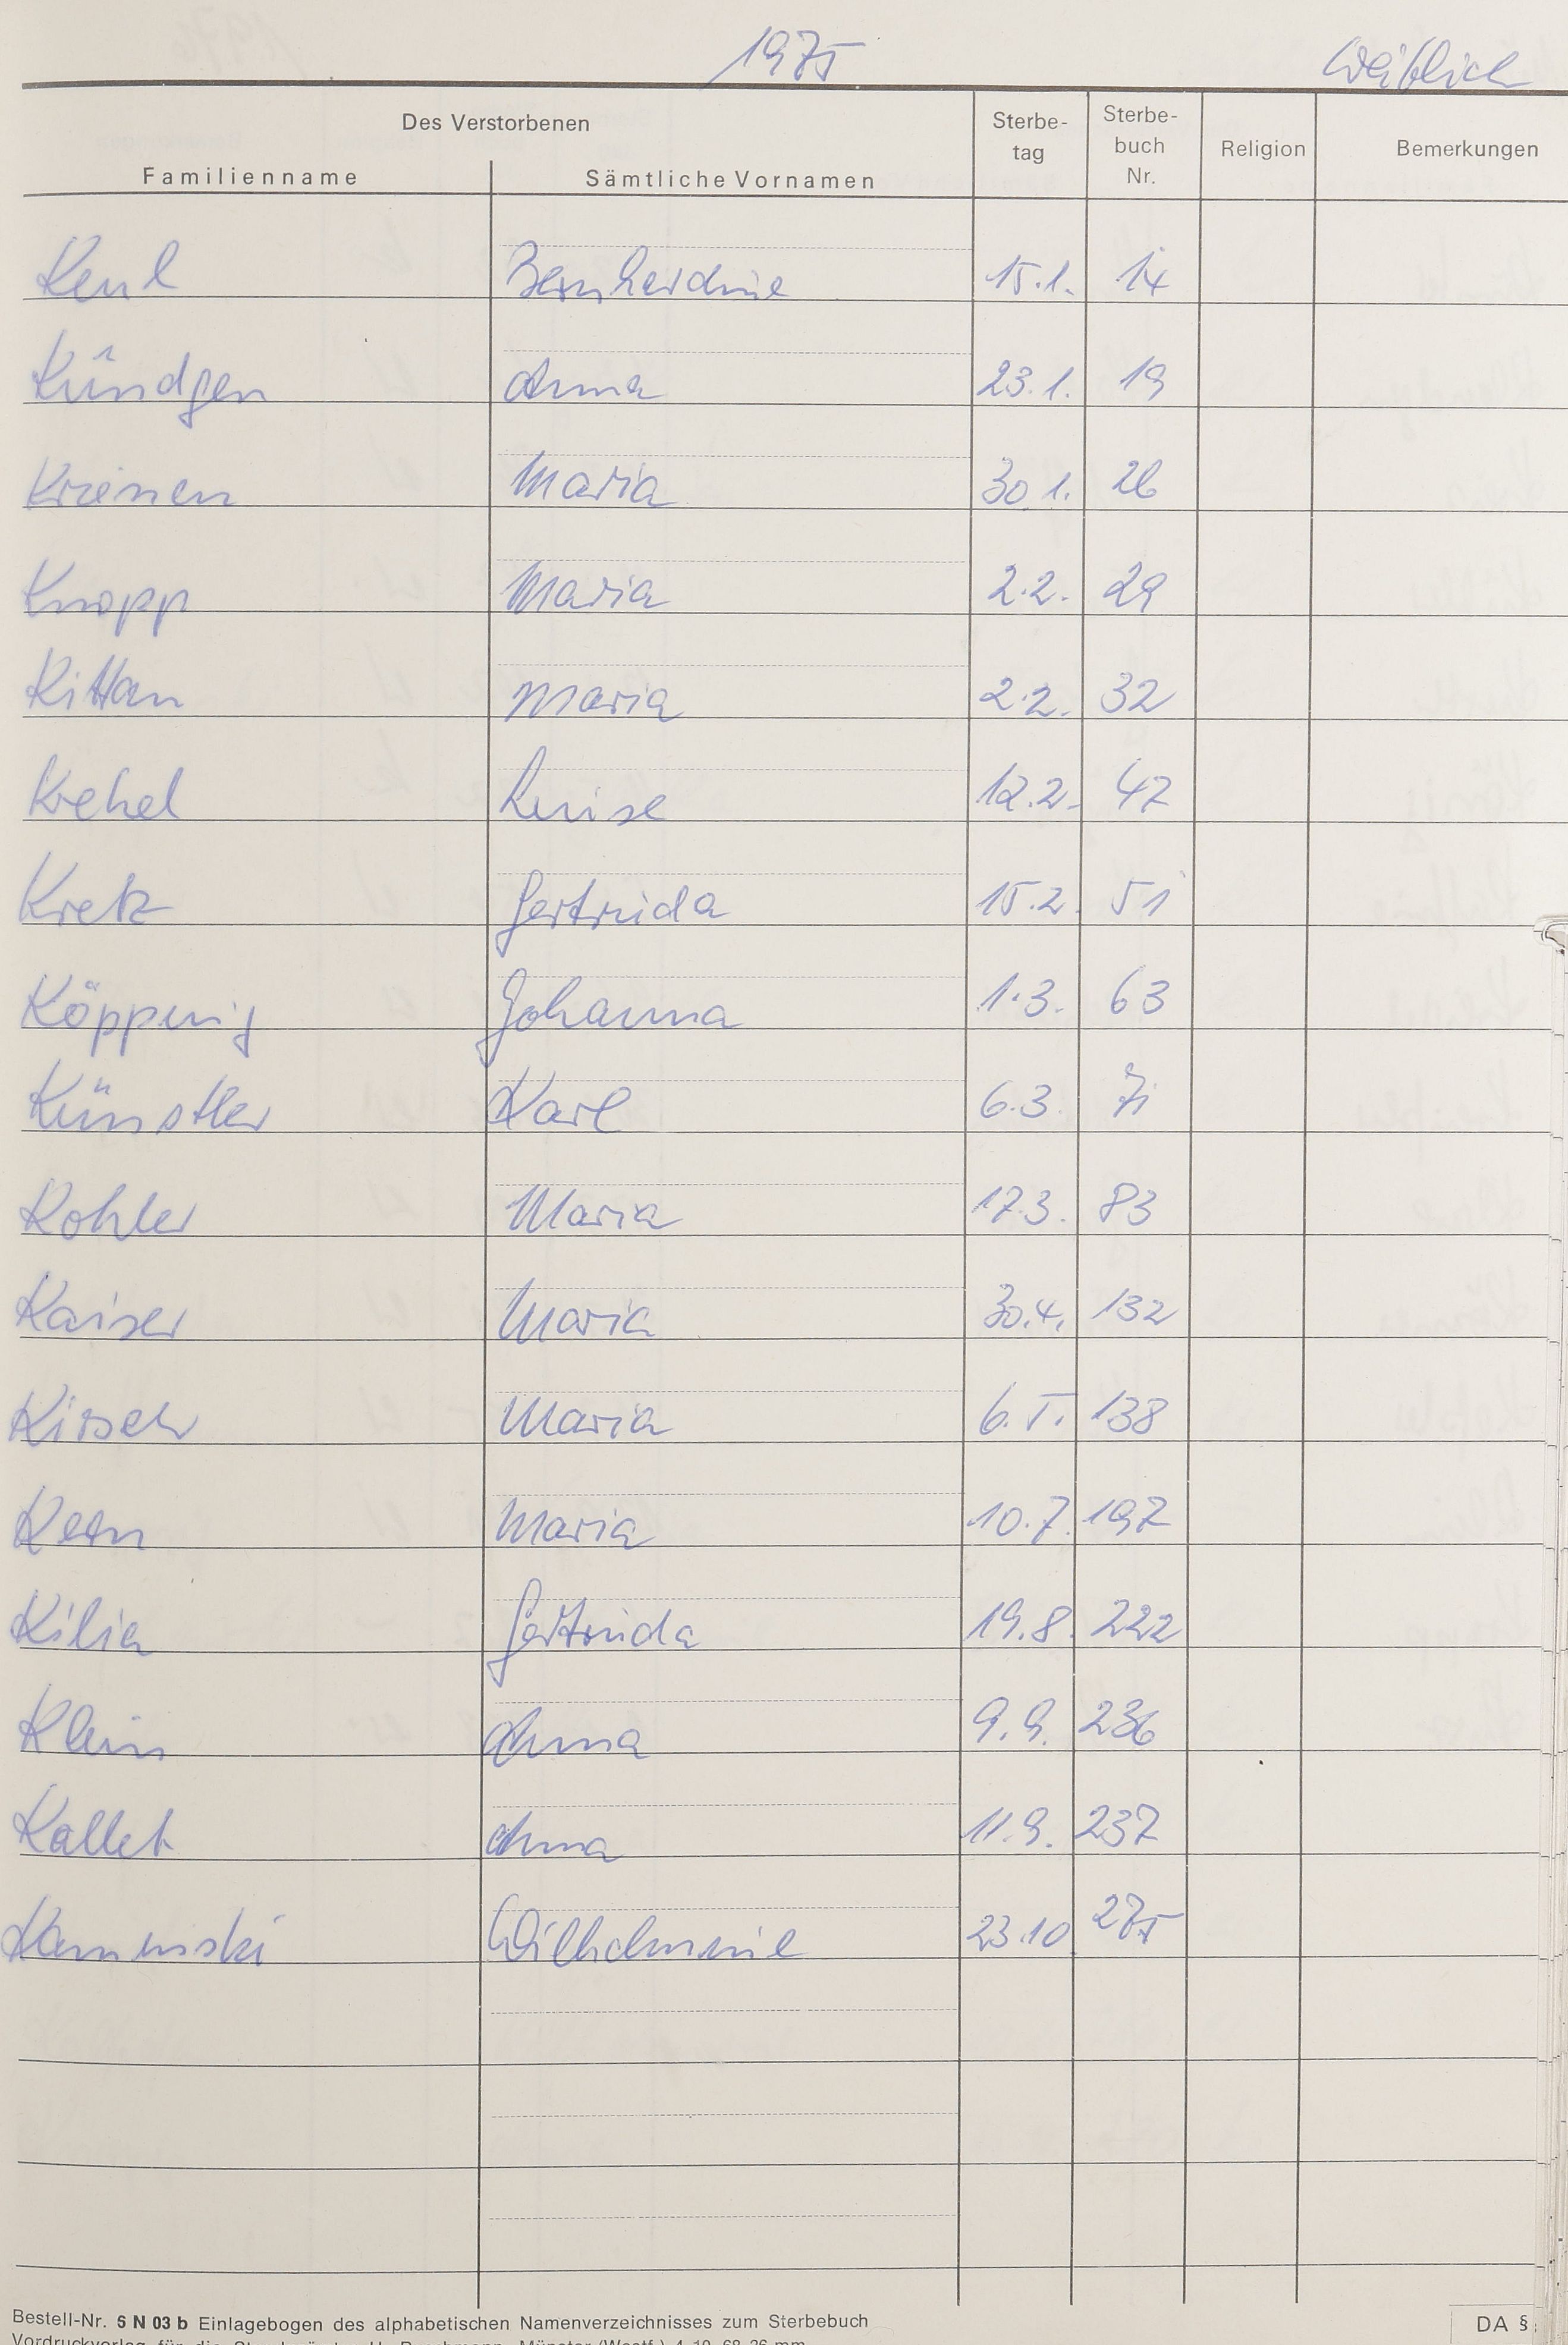 1975 weiblich
Des Verstorbenen
Familienname Sämtliche Vornamen Sterbe-tag Sterbe-buch Nr. Religion Bemerkungen
Keul Bernhardine 15.1. 14
Kündgen Anna 23.1. 19
Krienen Maria 30.1. 26
Knopp Maria 2.2. 29
Kittan Maria 2.2. 32
Krehel Luise 12.2. 47
Kretz Gertruda 15.2. 51
Köpping Johanna 1.3. 63
Künstler Karl 6.3. 71
Kohler Maria 17.3. 83
Kaiser Maria 30.4. 132
Kirsch Maria 6.5. 138
Kern Maria 10.7. 197
Kilia Gertruda 19.8. 222
Klein Anna 9.9. 236
Kallet Anna 11.9. 237
Kaminski Wilhelmine 23.10. 275
Bestell-Nr. 6 N 03 b Einlagebogen des alphabetischen Namenverzeichnisses zum Sterbebuch DA §